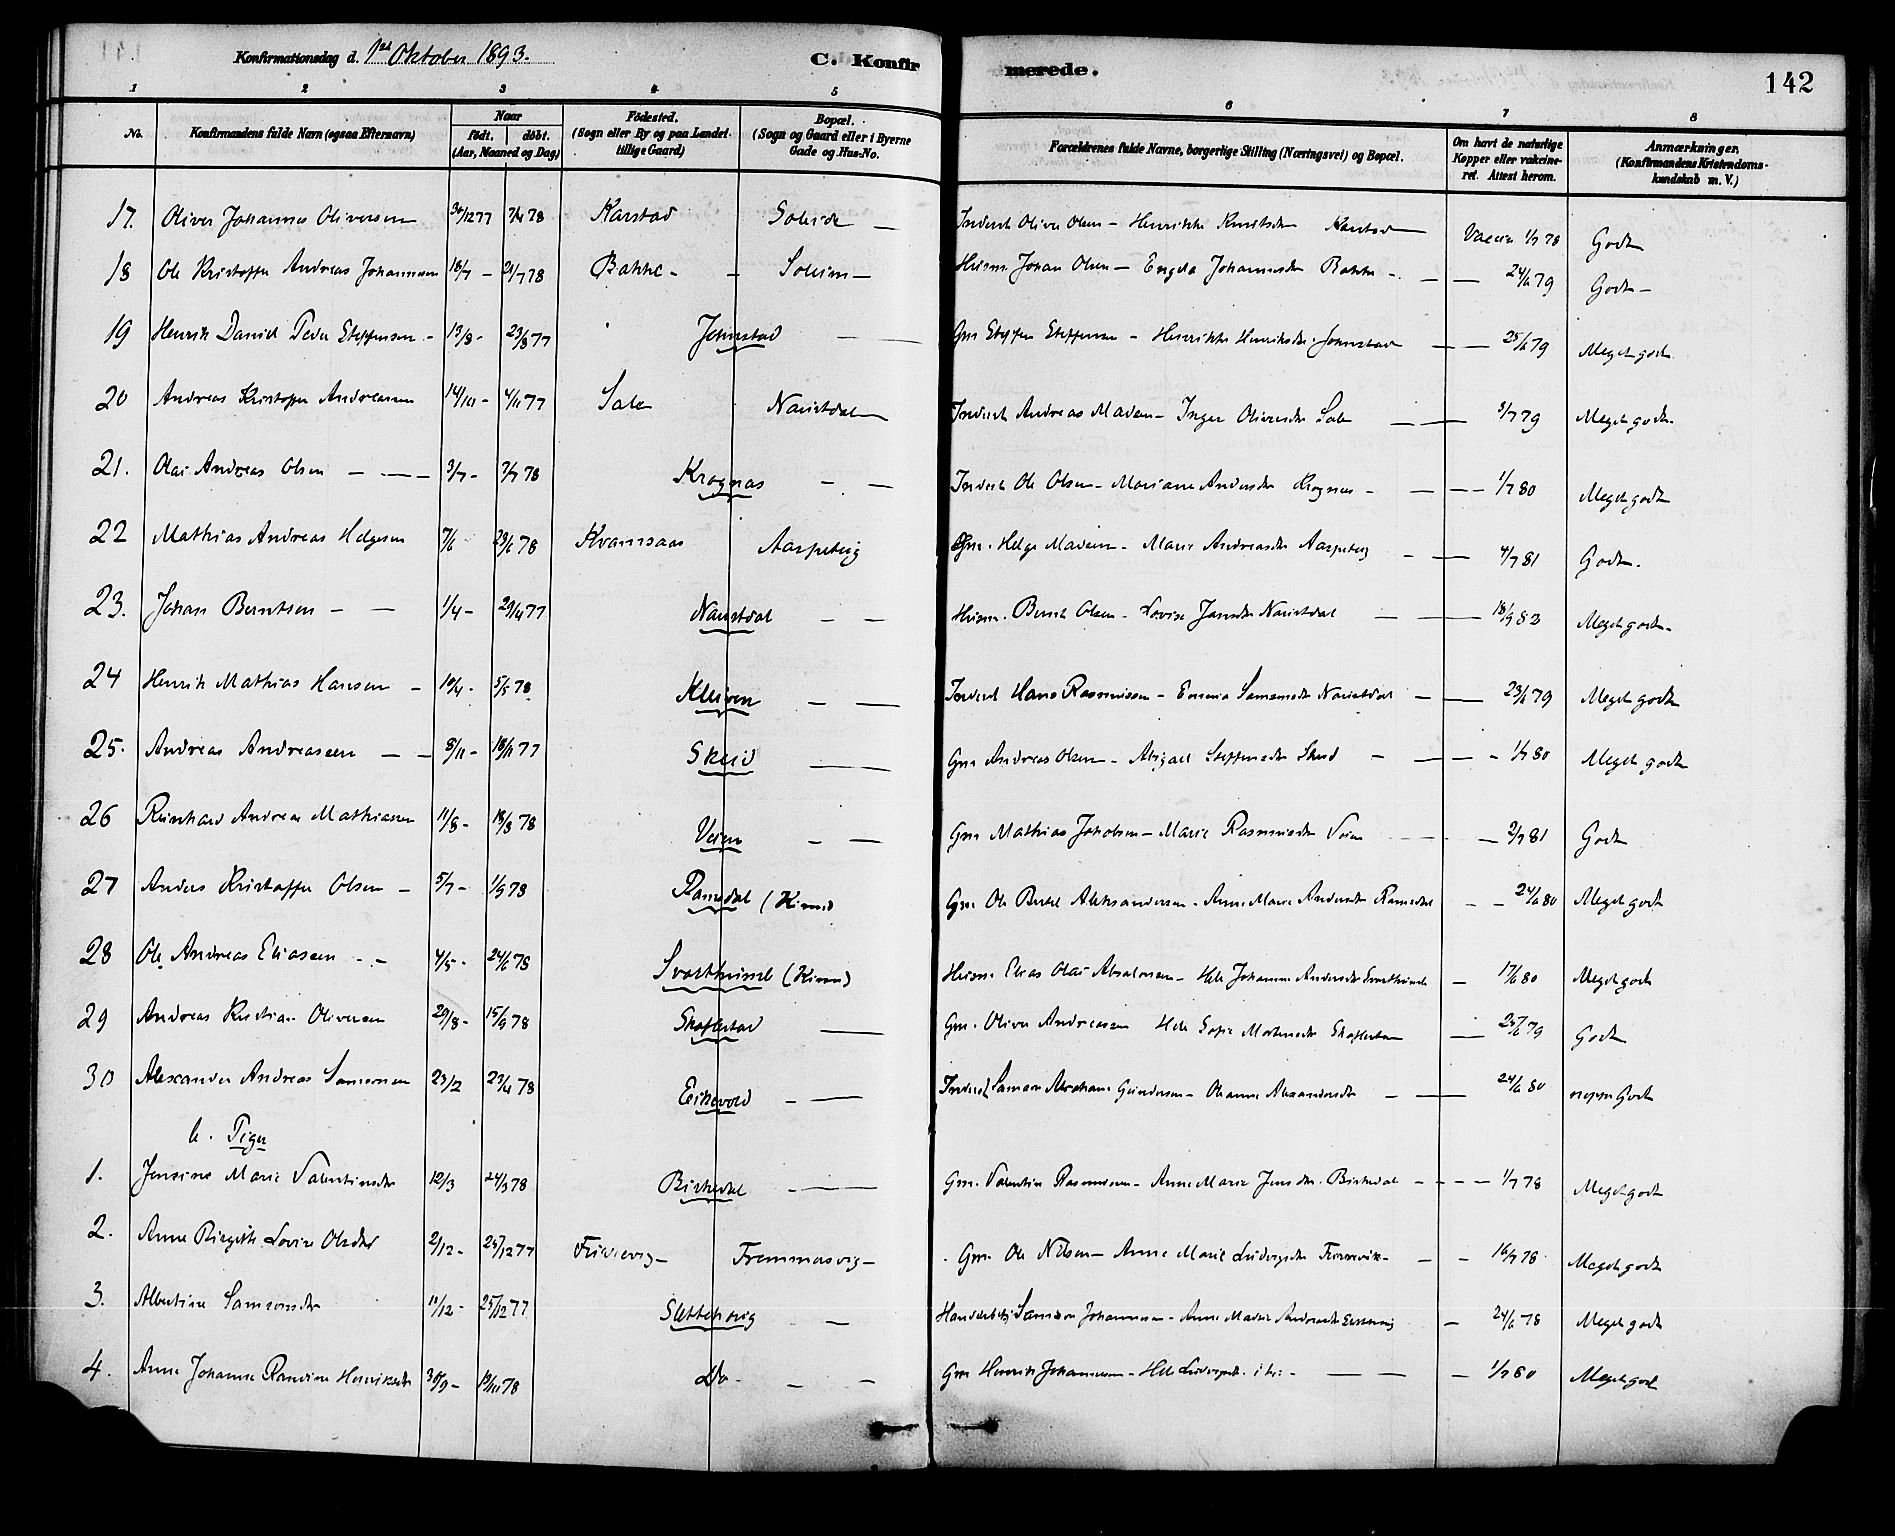 Konfirmationsdag d. 1ste Oktober 1893. C. Konfirmerede. 142
1 2 3 4 5 6 7 8
No. Konfirmandens fulde Navn (ogsaa Efternavn) Naar født. døbt. (Aar, Maaned og Dag) Fødested. (Sogn eller By og paa Landet tillige Gaard) Bopæl. (Sogn og Gaard eller i Byerne Gade og Hus-No. Forældrenes fulde Navne, borgerlige Stilling (Næringsvei) og Bopæl. Om havt de naturlige Kopper eller vakcineret. Attest herom. Anmærkninger. (Konfirmandens Kristendomskundskab m. V.)
17. Oliver Johannes Oliversen /12 77 78 Karstad Inderst Oliver Olsen – Henrikke Knutsdtr Karstad Vaccin 1/7 78 Godt
18 Ole Kristoffer Andreas Johannesen 18/7 – 21/7 78 Bakke – – Soleim – Husm. Johan Olsen – Engela Johannesdtr Bakke – – 24/6 79 Godt –
19 Henrik Daniel Peder Steffensen – 13/8 – 23/8 77 Johnstad – – Gm Steffen Steffensen – Henrikke Henriksdtr Johnstad – – 25/6 79 Meget godt.
20 Andreas Kristoffer Andreassen 14/10 – 4/11 77 Sale Naustdal Inderst Andreas Madsen – Inger Oliversdtr Sale – – 3/7 79 Meget godt.
21. Olai Andreas Olsen – – 3/7 – 7/7 78 Krognæs – – Inderst Ole Olsen – Mariane Andersdtr Krognes – – – 1/7 80 Meget godt
22 Mathias Andreas Helgesen 7/6 23/6 78 Kvamsaas Aaspeteig Gm. Helge Madsen – Marie Andreasdtr Aaspeteig – – 4/7 81 Godt.
23. Johan Berntsen – – 1/4 – 29/4 77 Naustdal – – Husm. Bernt Olsen – Lovise Jansdtr Naustdal – – 18/9 82 Meget godt –
24 Henrik Mathias Hansen – 10/4 – 5/5 78 Kleiven – – Inderst Hans Rasmussen – Emma Samsonsdtr Naustdal – – 23/6 79 Meget godt
25. Andreas Andreassen – – 8/11 – 18/11 77 Skeid – – Gm Andreas Olsen – Abigael Steffensdtr Skeid – – – 1/7 80 Meget godt
26 Reinhard Andreas Mathiassen 11/8 – 18/8 78 Veien – – Gm Mathias Jakobsen – Marie Rasmusdtr Veien – 2/7 81 Godt
27 Anders Kristoffer Olsen – 5/7 – 1/9 78 Ramsdal (Kinn) Gm Ole Bertel Aleksandersen – Anne Marie Andersdtr Ramsdal – – 24/6 80 Meget godt
28 Ole Andreas Eliassen – – 4/5 – 24/6 78 Svarthumle (Kinn) Husm Elias Olai Absalonsen – Helle Johanne Andersdtr Svarthumle – 17/6 80 Meget godt
29 Andreas Kristian Oliversen 29/8 – 15/9 78 Skaflestad – Gm. Oliver Andreassen Helle Sofie Mortensdtr Skaflestad – 25/6 79 Godt
30 Alexander Andreas Samsonsen 23/2 23/4 78 Eikevold – – Inderst Samson Abraham Gundersen – Oleanne Alexandersdtr – – 24/6 80 neppe Godt
b. Piger
1. Jensine Marie Valentinsdtr 12/3 24/3 78 Birkedal – – Gm. Valentin Rasmussen – Anne Marie Jensdtr. Birkedal – – – – 1/7 78 Meget godt
2. Anne Birgitte Lovise Olsdtr 2/12 – 25/12 77 Furevig – Fremmasvig – Gm. Ole Nilsen – Anne Marie Ludvigsdtr Furevik – – – 16/7 78 Meget godt
3. Albertine Samsonsdtr 11/12 – 25/12 77 Slettehvig – Samson Johannessen – Anne Marie Andreasdtr – 24/6 78 Meget godt
4. Anne Johanne Randine Henriksdtr 30/9 – 78 Do. – – Gm Henrik Johannessen – Helle Ludvigsdtr. ibid – – – 1/7 80 Meget godt